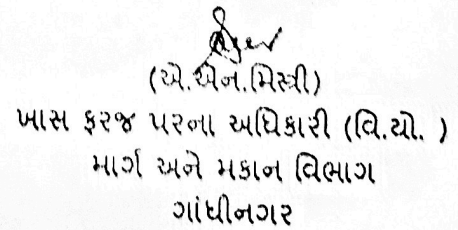 (એ.એન.મિસ્ત્રી)
ખાસ ફરજ પરના અધિકારી (વિ.યો. )
માર્ગ અને મકાન વિભાગ
ગાંધીનગર